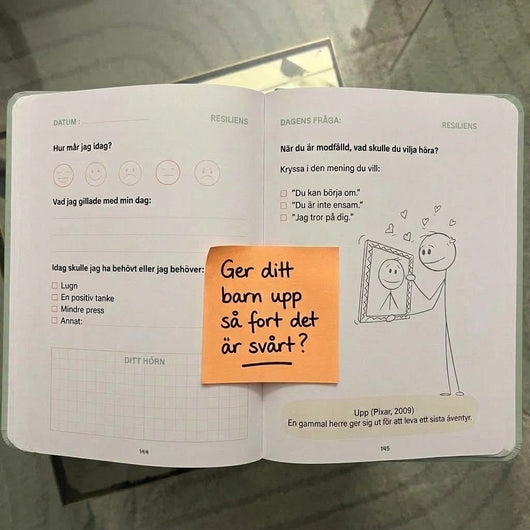 DATUM :
RESILIENS
Hur mår jag idag?
Vad jag gillade med min dag:
Idag skulle jag ha behövt eller jag behöver:
Lugn
En positiv tanke
Mindre press
Annat:
DITT HÖRN
144
Ger ditt
barn upp
så fort det
är svårt?
DAGENS FRÅGA:
RESILIENS
När du är modfälld, vad skulle du vilja höra?
Kryssa i den mening du vill:
"Du kan börja om."
"Du är inte ensam."
"Jag tror på dig."
Upp (Pixar, 2009)
En gammal herre ger sig ut för att leva ett sista äventyr.
145